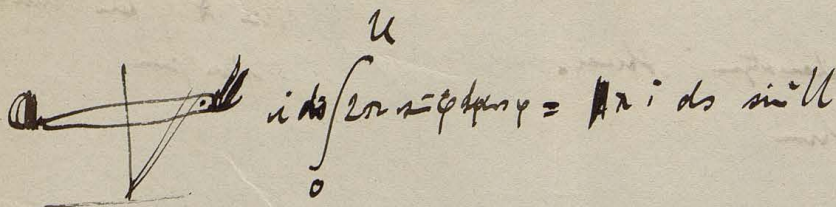 i ds ∫₀ᵁ 2π sin φ dφ cos φ = π i ds sin² U